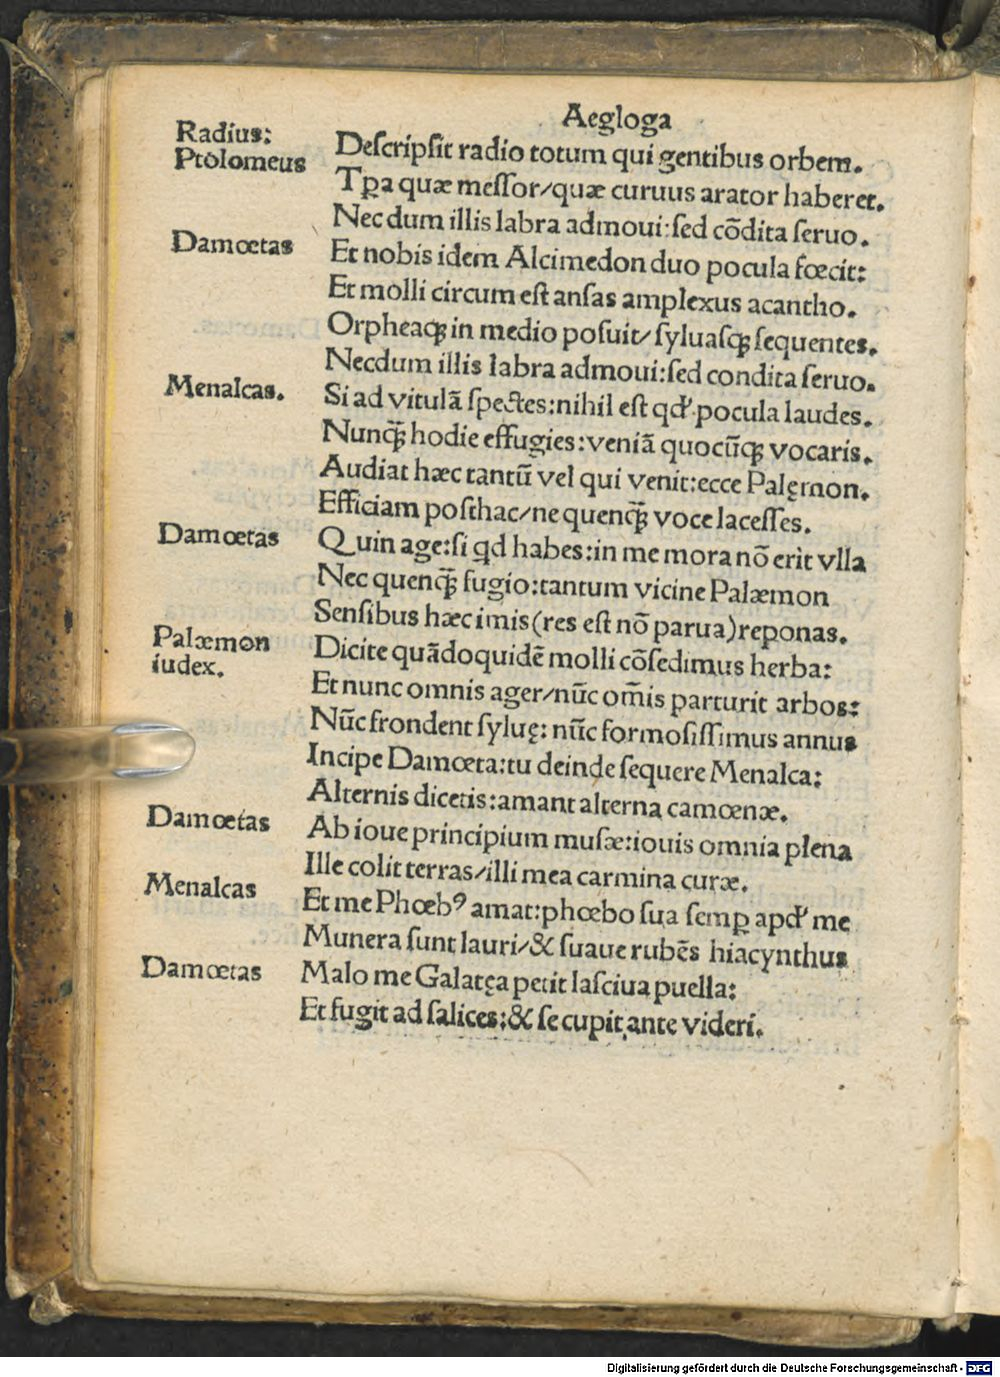 Aegloga
Radius:
Ptolomeus
Deſcripſit radio totum qui gentibus orbem.
Tꝑa quæ meſſor/quæ curuus arator haberet.
Nec dum illis labra admoui:ſed cōdita ſeruo.
Damœtas
Et nobis idem Alcimedon duo pocula fœcit:
Et molli circum eſt anſas amplexus acantho.
Orpheaqꝫ in medio poſuit/ ſyluaſqꝫ ſequentes.
Necdum illis labra admoui:ſed condita ſeruo.
Menalcas.
Si ad vitulā ſpectes:nihil eſt qđ pocula laudes.
Nunqꝫ̄ hodie effugies:veniā quocūqꝫ vocaris.
Audiat hæc tantū vel qui venit:ecce Palęmon.
Efficiam poſthac/ne quenqꝫ̄ voce laceſſes.
Damœtas
Quin age:ſi qd habes:in me mora nō erit vlla
Nec quenqꝫ̄ fugio:tantum vicine Palæmon
Senſibus hæc imis(res eſt nō parua)reponas.
Palæmon
iudex.
Dicite quādoquidē molli cōſedimus herba:
Et nunc omnis ager/nūc om̄is parturit arbos:
Nūc frondent ſyluę: nūc formoſiſſimus annus
Incipe Damœta:tu deinde ſequere Menalca:
Alternis dicetis:amant alterna camœnæ.
Damœtas
Ab ioue principium muſæ:iouis omnia plena
Ille colit terras/illi mea carmina curæ.
Menalcas
Et me Phœbꝰ amat:phœbo ſua ſemꝑ apđ me
Munera ſunt lauri/& ſuaue rubēs hiacynthus
Damœtas
Malo me Galatęa petit laſciua puella:
Et fugit ad ſalices:& ſe cupit ante videri.
Digitalisierung gefördert durch die Deutsche Forschungsgemeinschaft - DFG